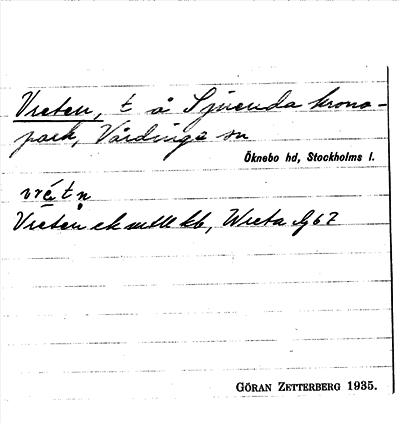 Vreten, t å Sjuenda krono-
park, Vårdinge sn
Öknebo hd, Stockholms l.
vré t n
Vreten ek kb, Wreta
GÖRAN ZETTERBERG 1935.